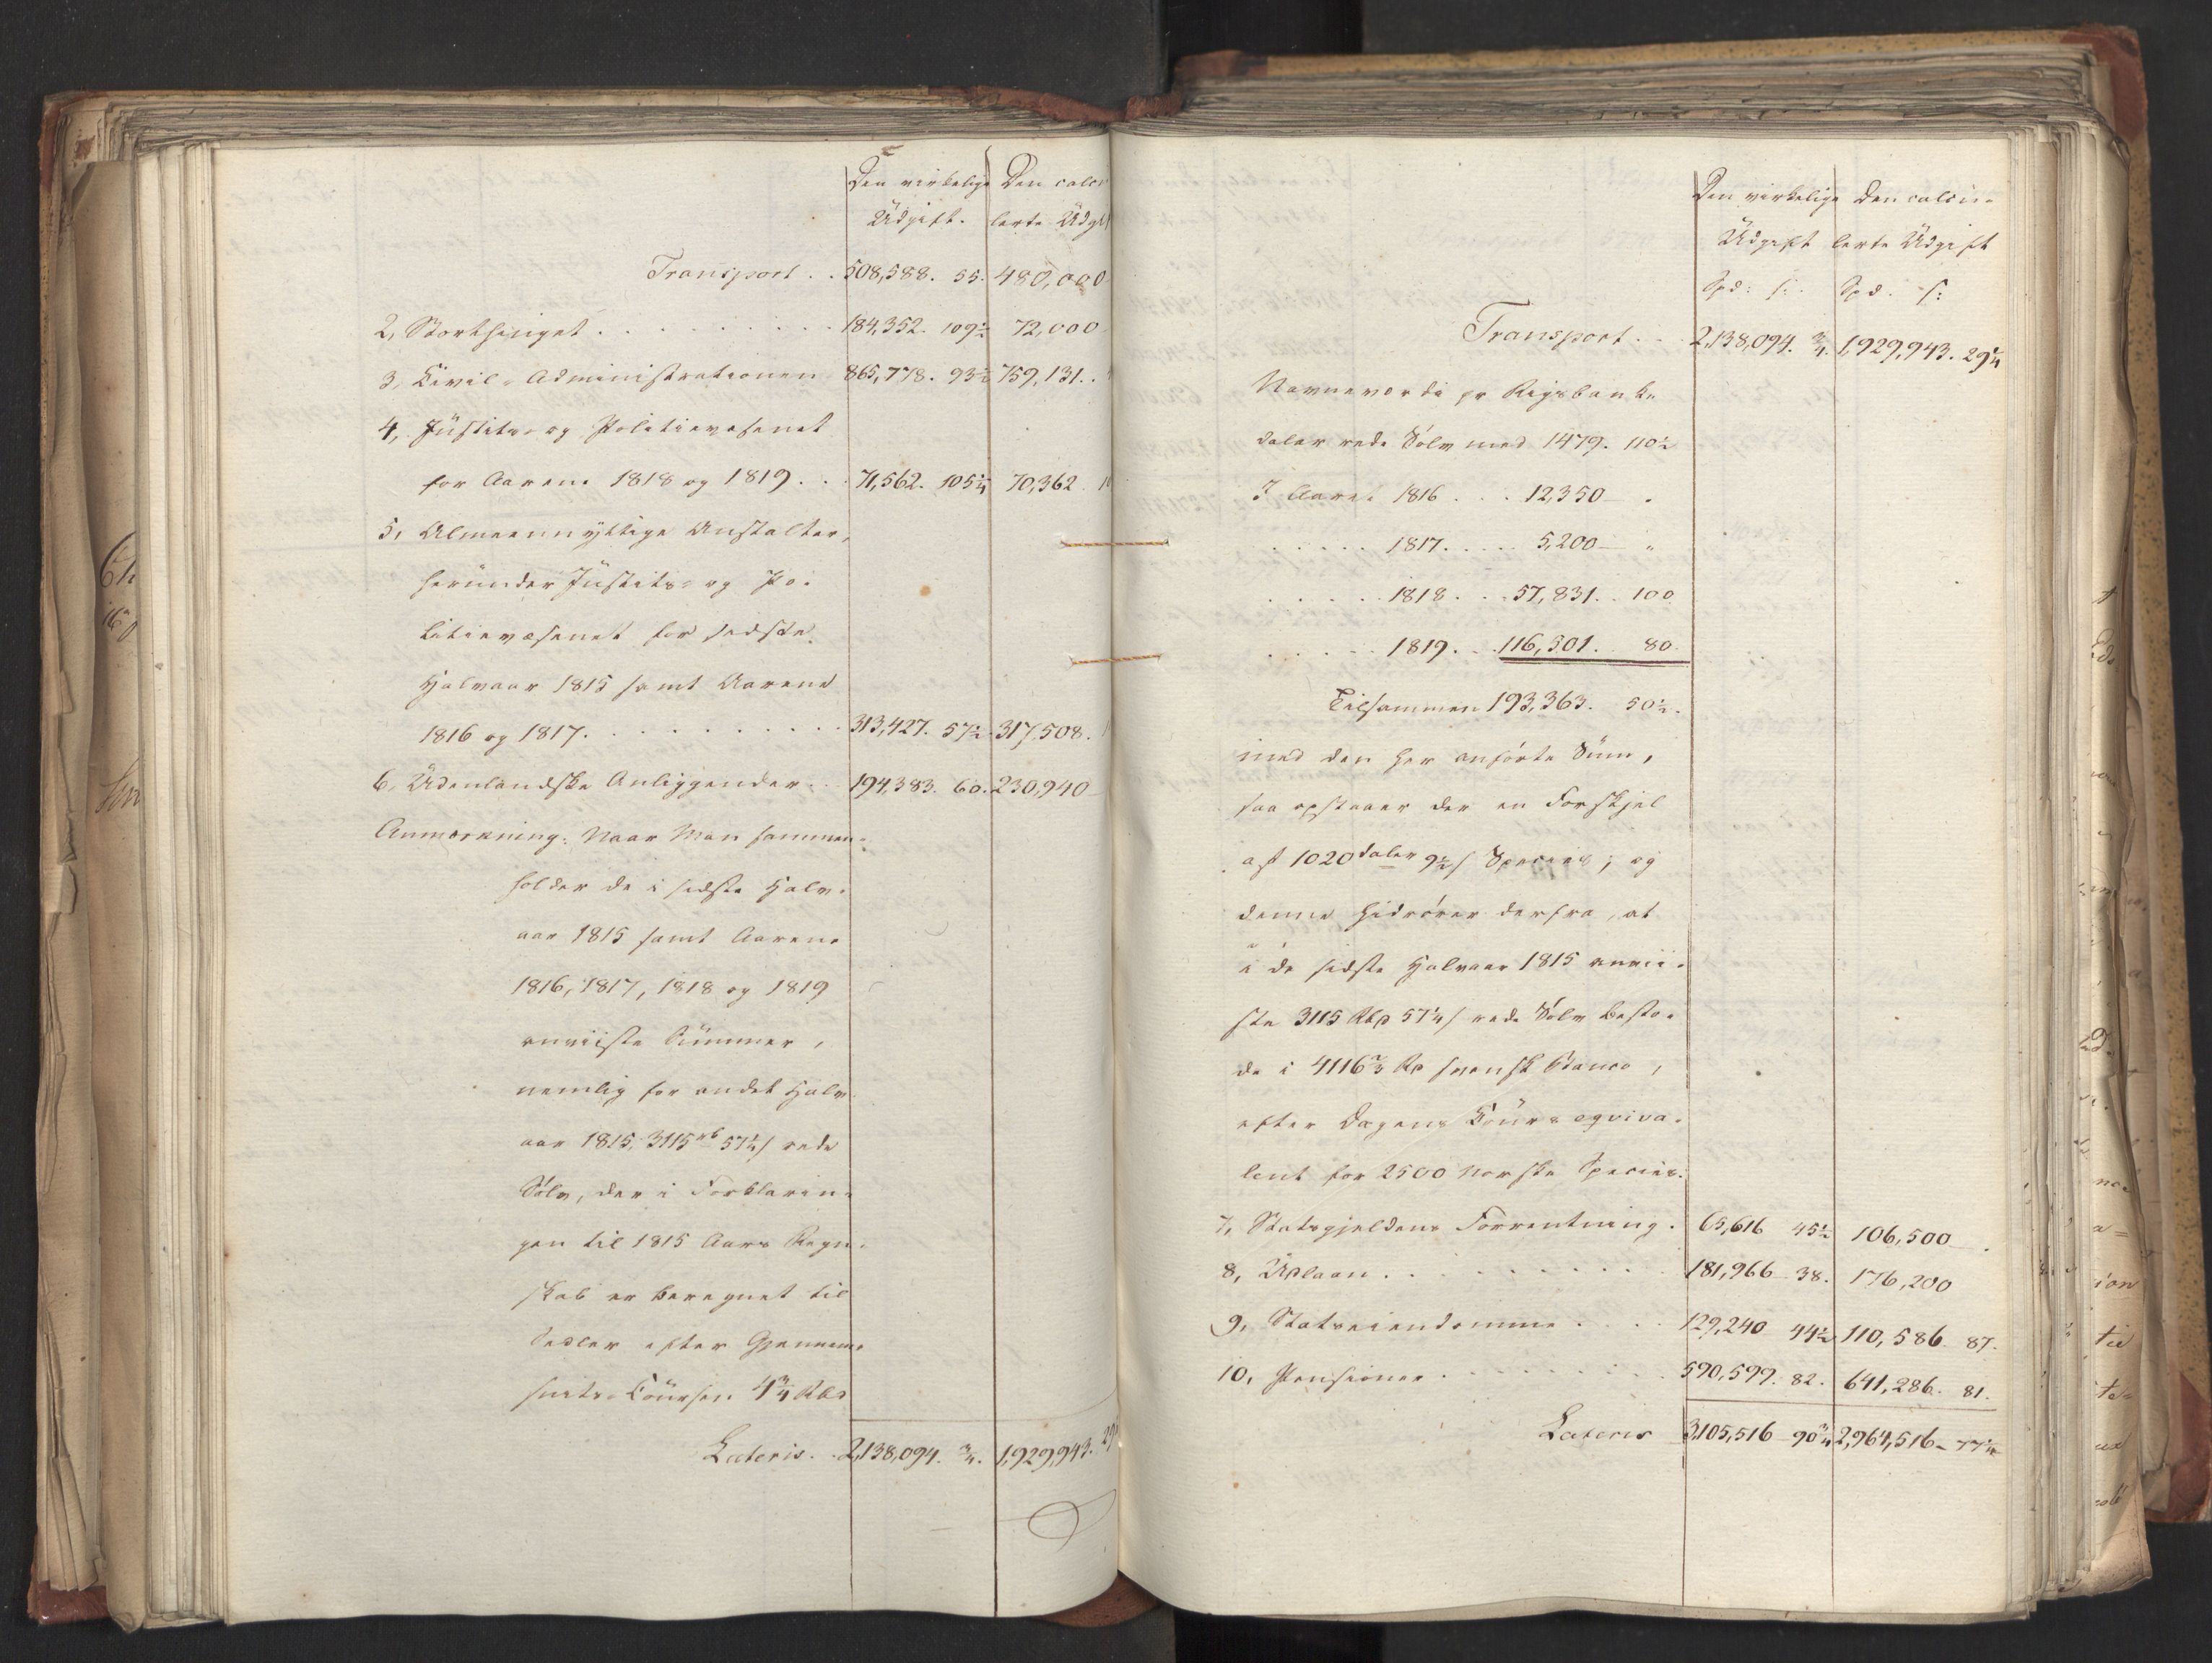 Den virkelige Den calcu
Udgift. lerte Udg
Transport . . 508,588. 55. 480,000
2, Storthinget . . . . . . . . . 184,352. 109½ 72,000
3, Civil-Administrationen 865,778. 93½ 759,131. .
4, Justits- og Politievæsenet
for Aarene 1818 og 1819 . . . 71,562. 105¼ 70,362
5, Almeennyttige Anstalter,
herunder Justits- og Po-
litievæsenet for sidste
Halvaar 1815 samt Aarene
1816 og 1817. . . . . . . . . . 313,427. 57½. 317,508.
6, Udenlandske Anliggender . . 194,383. 60. 230,940
Anmærkning: Naar Man sammen-
holder de i sidste Halv-
aar 1815 samt Aarene
1816, 1817, 1818 og 1819
anviiste Summer,
nemlig for andet Halv-
aar 1815, 3115 rb 57¼ s rede
Sølv, der i Forklarin-
gen til 1815 Aars Regn-
skab er beregnet til
Sedler efter Gjennem-
snits-Coursen 4¾ Rbd
Lateris . . 2,138,094. ¾. 1,929,943. 29
Den virkelige Den calcu-
Udgift lerte Udgift
Spd: s: Spd. s:
Transport . . . 2,138,094. ¾. 1,929,943. 29¼
Navneværdi pr Rigsbank-
daler rede Sølv med 1479. 110½
I Aaret 1816 . . . 12,350 "
. . . . . 1817. . . . . 5,200 "
. . . . . 1818 . . . 57,831. . 100
. . . . . 1819. . . 116,501. 80
Tilsammen 193,363. 50½.
med den her anførte Sum,
saa opstaaer der en Forskjel
af 1020 daler 9½ s Species; og
denne hidrører derfra, at
i de sidste Halvaar 1815 anvii-
ste 3115 Rbd 57¼ s rede Sølv besto-
de i 4116⅔ Rd svensk Banco,
efter Dagens Cours eqviva-
lent for 2500 Norske Species.
7, Statsgjeldens Forrentning . 65,616 45½ 106,500
8, Udlaan . . . . . . . . . . 181,966 38. 176,200
9, Statseiendomme . . . . 129,240 44½ 110,586. 87.
10, Pensioner . . . . . . . . . 590,599. 82. 641,286. 81.
Lateris 3,105,516 90¾ 2,964,516 77¼